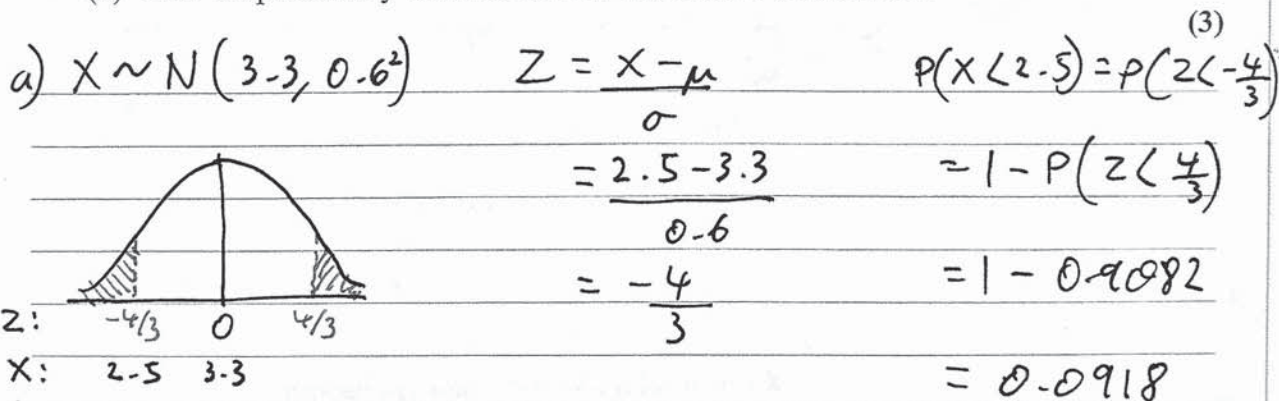 (3)
a) X ~ N(3.3, 0.6²)
Z = X-μ / σ
= 2.5-3.3 / 0.6
= -4/3
P(X<2.5) = P(Z<-4/3)
= 1 - P(Z<4/3)
= 1 - 0.9082
= 0.0918
Z: -4/3 0 4/3
X: 2.5 3.3